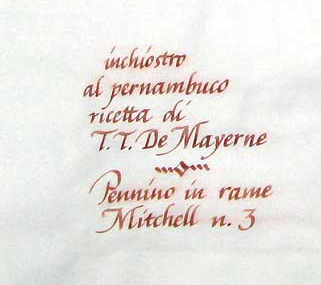 inchiostro
al pernambuco
ricetta di
T.T. De Mayerne
Pennino in rame
Mitchell n. 3